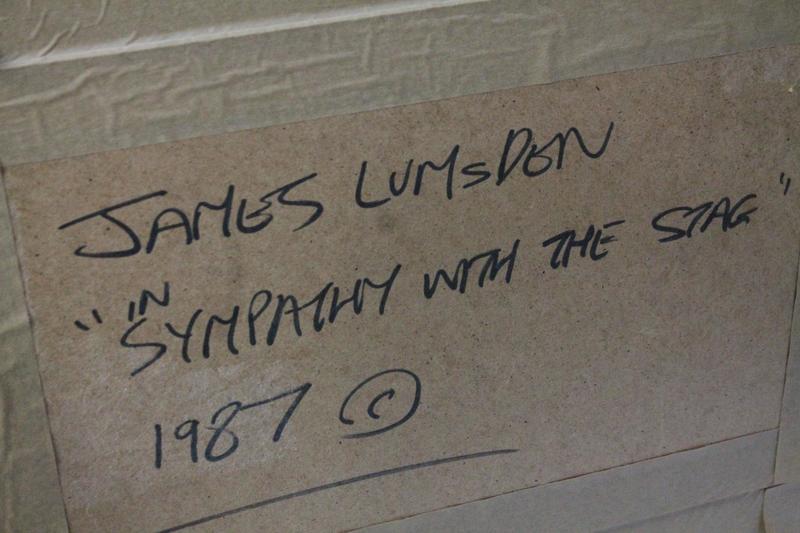 JAMES LUMSDEN
"IN
SYMPATHY WITH THE STAG"
1987 ©